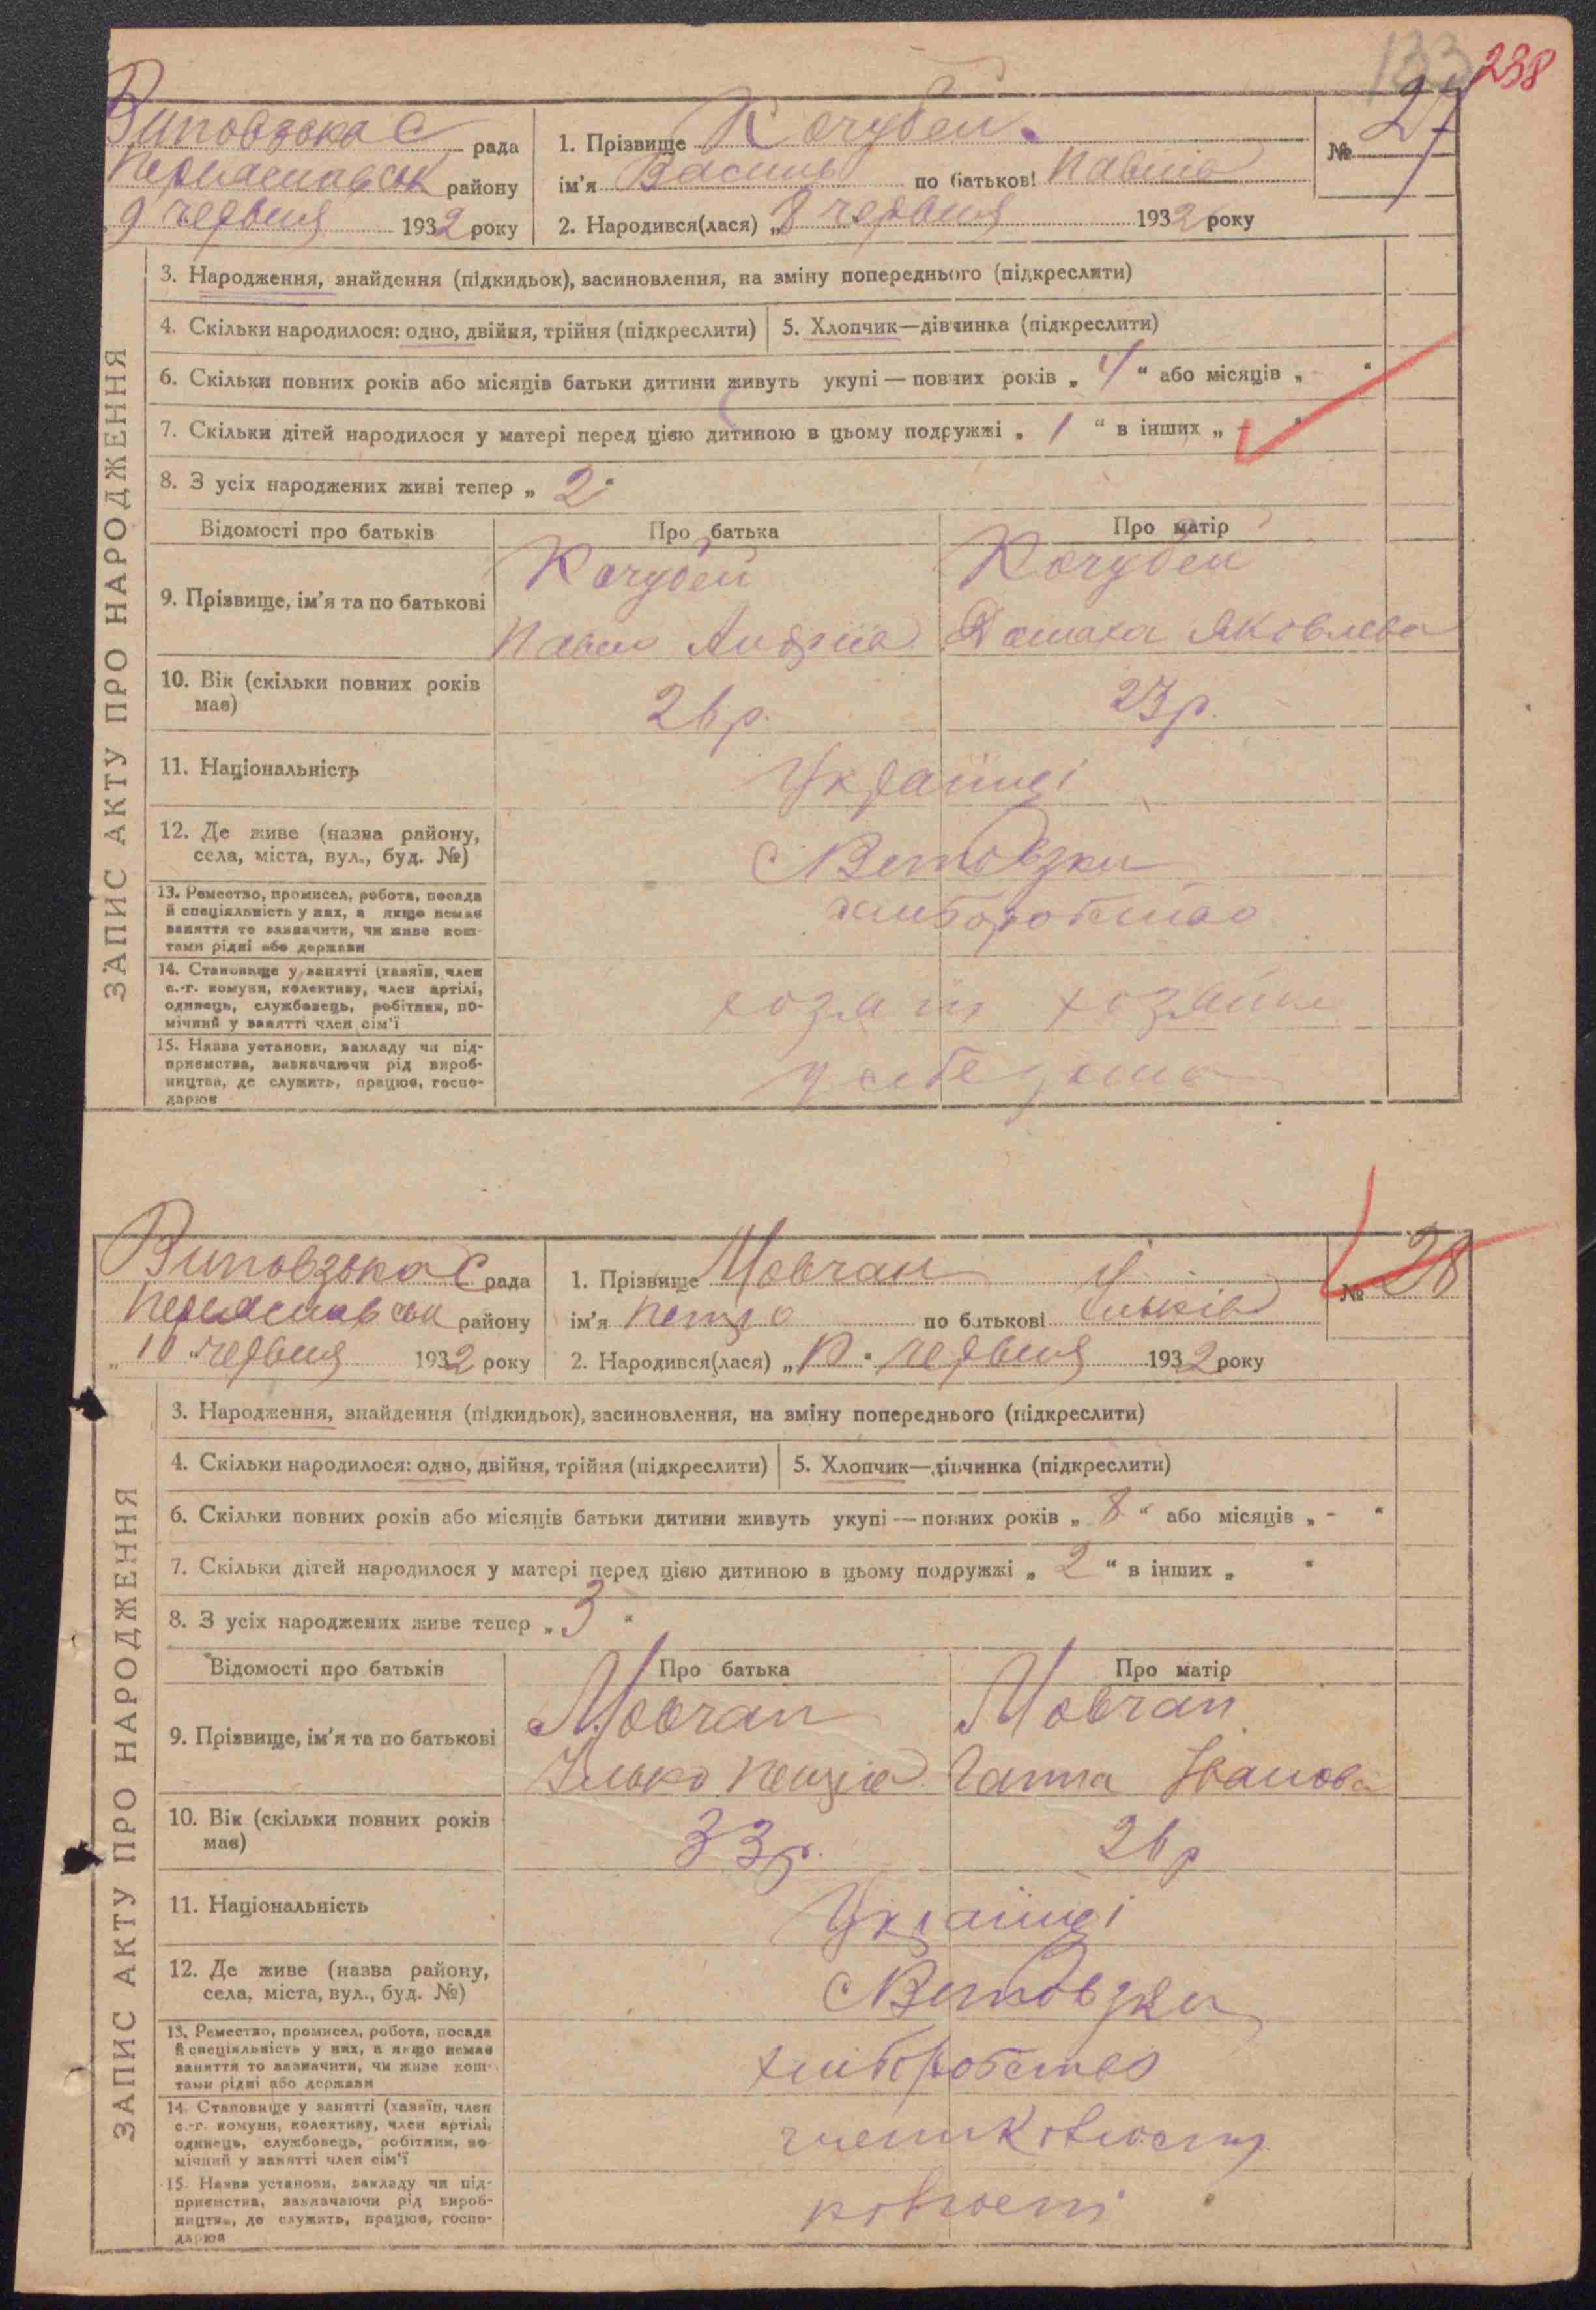 133 238
Виповзька С рада
Переяславськ району
9 червня 1932 року
1. Прізвище Кочубей
ім'я Василь по батькові Павлів
2. Народився(лася) „8 червня 1932 року
№ 27
ЗАПИС АКТУ ПРО НАРОДЖЕННЯ
3. Народження, знайдення (підкидьок), засиновлення, на зміну попереднього (підкреслити)
4. Скільки народилося: одно, двійня, трійня (підкреслити)
5. Хлопчик—дівчинка (підкреслити)
6. Скільки повних років або місяців батьки дитини живуть укупі — повних років „ 4 “ або місяців „ - “
7. Скільки дітей народилося у матері перед цією дитиною в цьому подружжі „ 1 “ в інших „ - “
8. З усіх народжених живі тепер „ 2 “
Відомості про батьків
Про батька
Про матір
9. Прізвище, ім'я та по батькові
Кочубей
Павло Андріїв
Кочубей
Домаха Яковлева
10. Вік (скільки повних років
має)
26 р.
23 р.
11. Національність
Українці
12. Де живе (назва району,
села, міста, вул., буд. №)
с Виповзки
13. Ремество, промисел, робота, посада
й спеціяльність у них, а якщо немає
заняття то зазначити, чи живе кош-
тами рідні або держави
хліборобство
14. Становище у занятті (хазяїн, член
с.-г. комуни, колективу, член артілі,
одинець, службовець, робітник, по-
мічний у занятті член сім'ї
хозяїн хозяйка
15. Назва установи, закладу чи під-
приємства, зазначаючи рід вироб-
ництва, де служить, працює, госпо-
дарює
у себе дома
Виповзька С рада
Переяславськ району
„ 10 “ червня 1932 року
1. Прізвище Мовчан
ім'я Петро по батькові Ільків
2. Народився(лася) „ 10 “ червня 1932 року
№ 28
ЗАПИС АКТУ ПРО НАРОДЖЕННЯ
3. Народження, знайдення (підкидьок), засиновлення, на зміну попереднього (підкреслити)
4. Скільки народилося: одно, двійня, трійня (підкреслити)
5. Хлопчик—дівчинка (підкреслити)
6. Скільки повних років або місяців батьки дитини живуть укупі — повних років „ 8 “ або місяців „ - “
7. Скільки дітей народилося у матері перед цією дитиною в цьому подружжі „ 2 “ в інших „ “
8. З усіх народжених живе тепер „ 3 “
Відомості про батьків
Про батька
Про матір
9. Прізвище, ім'я та по батькові
Мовчан
Ілько Петрів
Мовчан
Ганна Іванова
10. Вік (скільки повних років
має)
33 р.
26 р
11. Національність
Українці
12. Де живе (назва району,
села, міста, вул., буд. №)
с Виповзки
13. Ремество, промисел, робота, посада
й спеціяльність у них, а якщо немає
заняття то зазначити, чи живе кош-
тами рідні або держави
хліборобство
14. Становище у занятті (хазяїн, член
с.-г. комуни, колективу, член артілі,
одинець, службовець, робітник, по-
мічний у занятті член сім'ї
15. Назва установи, закладу чи під-
приємства, зазначаючи рід вироб-
ництва, де служить, працює, госпо-
дарює